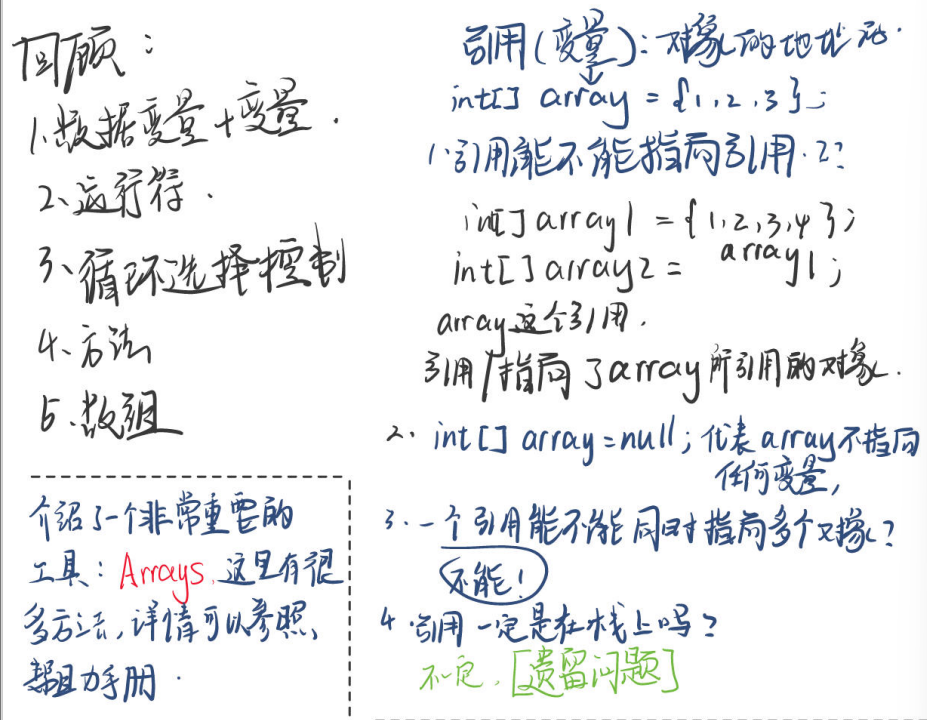 回顾：
1.数据变量+变量.
2、运行符.
3、循环选择控制
4、方法
5.数组
介绍了一个非常重要的
工具：Arrays,这里有很
多方法,详情可以参照、
帮助手册.
引用(变量)：对象的地址
int[] array = {1,2,3};
1.引用能不能指向引用.?
int[] array1 = {1,2,3,4};
int[] array2 = array1;
array这个引用.
引用/指向了array所引用的对象.
2. int[] array=null;代表array不指向
任何变量,
3.一个引用能不能同时指向多个对象?
不能!
4.引用一定是在栈上吗?
不一定.[遗留问题]